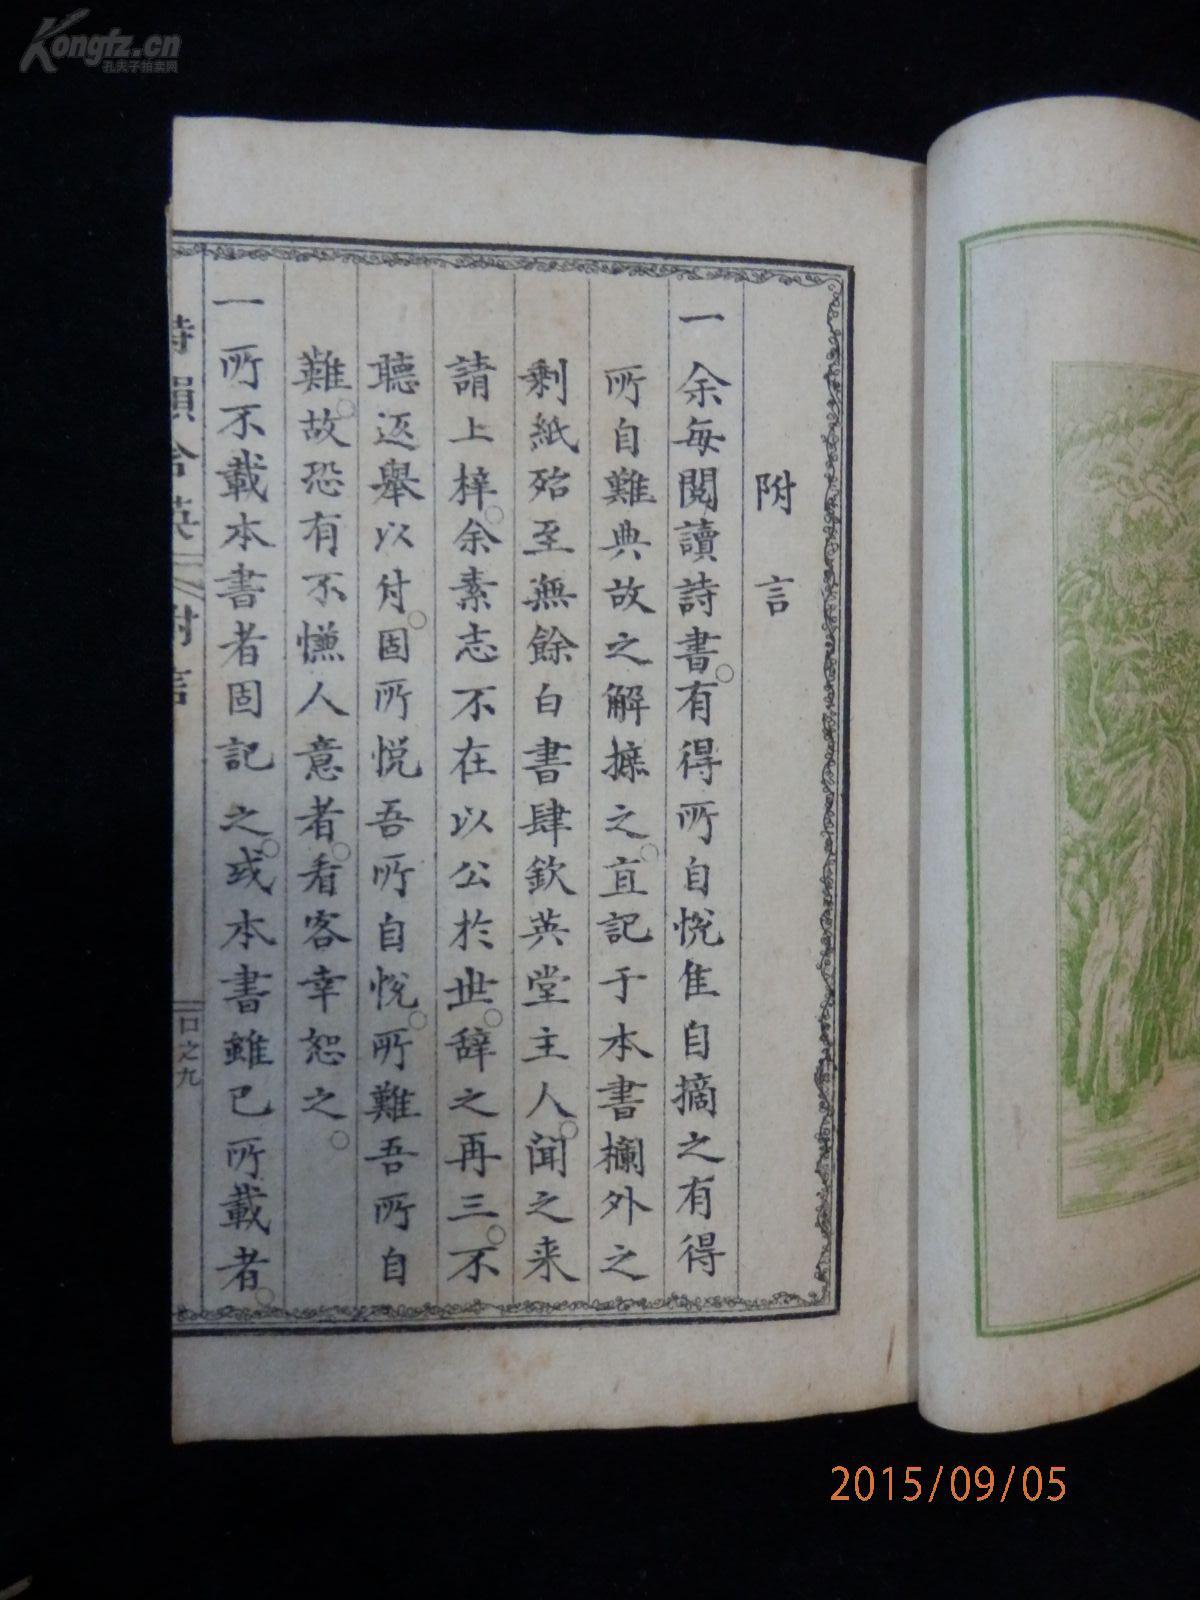 Kongfz.cn
孔夫子拍卖网
附言
一余每閱讀詩書。有得所自悅隹自摘之有得
所自難典故之解摭之。直記于本書欄外之
剩紙殆至無餘白書肆欽英堂主人。聞之来
請上梓。余素志不在以公於世。辞之再三。不
聽返舉以付。固所悅吾所自悅。所難吾所自
難。故恐有不慊人意者。看客幸恕之。
一所不載本書者固記之。或本書雖已所載者。
詩韻含英
附言
口之九
2015/09/05